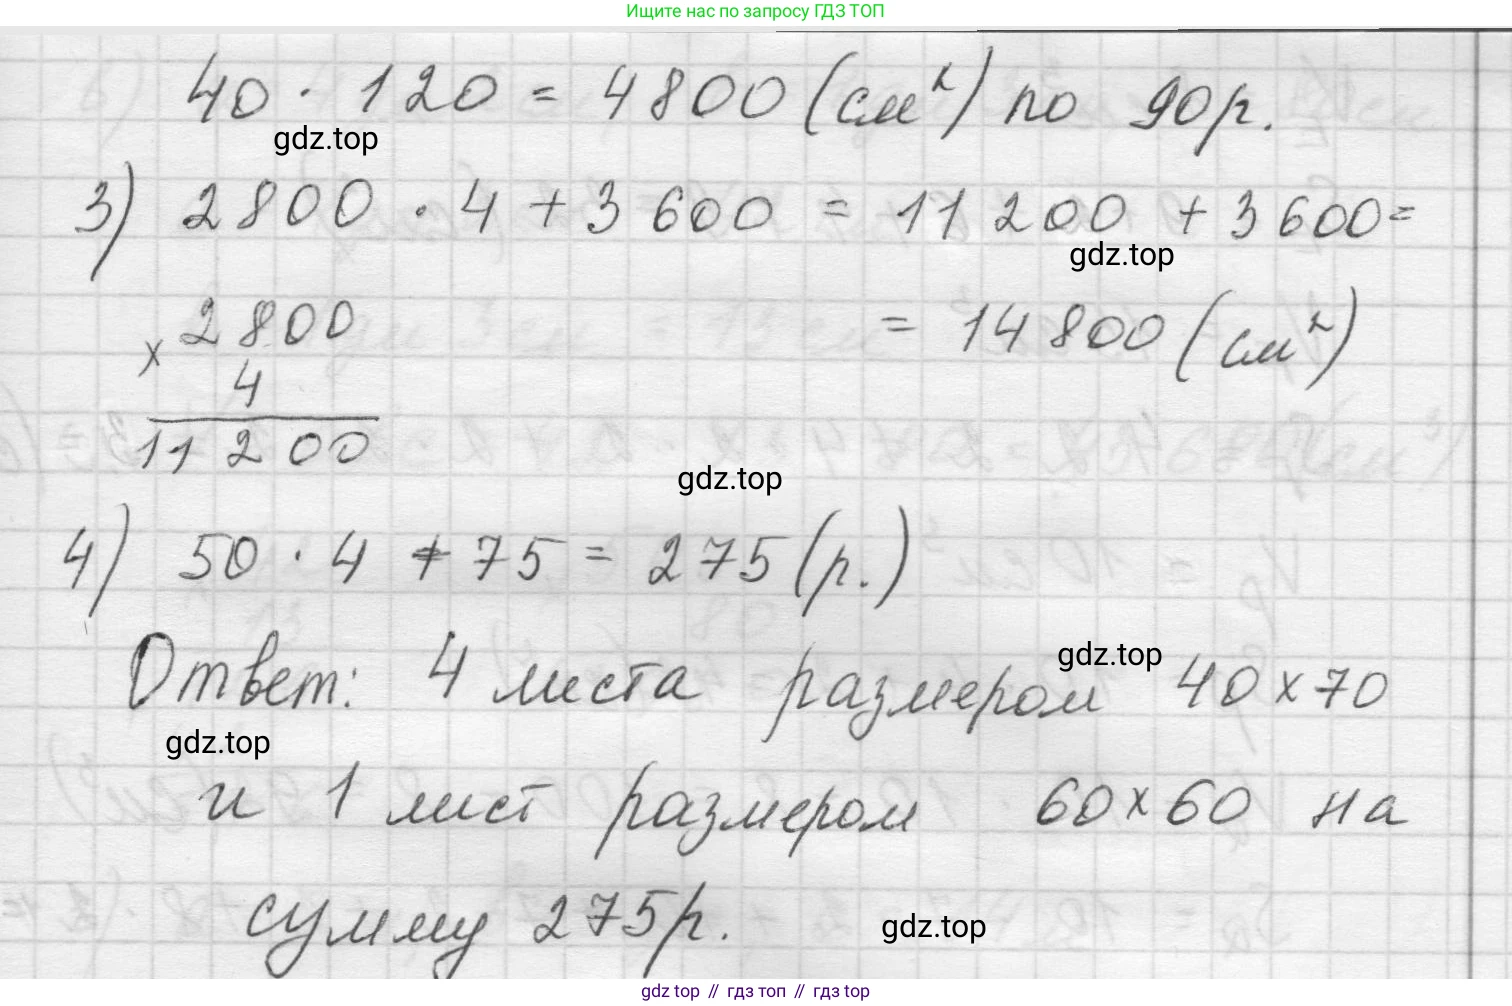 Ищите нас по запросу ГДЗ ТОП
40 · 120 = 4800 (см²) по 90р.
gdz.top
3) 2800 · 4 + 3600 = 11200 + 3600 =
gdz.top
× 2800
= 14800 (см²)
4
11200
gdz.top
4) 50 · 4 + 75 = 275 (р.)
Ответ: 4 листа размером 40 × 70
gdz.top
gdz.top
и 1 лист размером 60 × 60 на
сумму 275р.
gdz.top
gdz top // гдз топ // гдз top